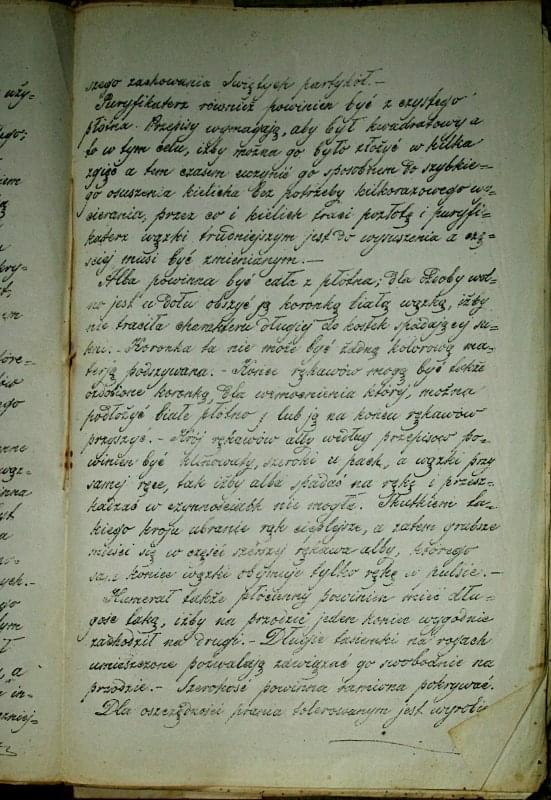 szego zachowania Świętych partykół. –
Puryfikaterz również powinien być z czystego
płótna. Przepisy wymagają, aby był kwadratowy a
to w tym celu, iżby można go było złożyć w kilka
zgięć a tem czasem uczynić go sposobnem do szybkie=
go osuszenia kielicha bez potrzeby kilkorazowego wy=
cierania, przez co i kielich traci pozłotę i puryfi=
katerz wązki trudniejszym jest do wysuszenia a czę=
ściej musi być zmienianym. –
Alba powinna być cała z płótna; dla ozdoby wol=
no jest u dołu obszyć ją koronką białą wązką, iżby
nie traciła charakteru długiej do kostek spadającej su=
kni. – Koronka ta nie może być żadną kolorową ma=
teryą podszywana. – Końce rękawów mogą być także
ozdobione koronką, dla wzmocnienia której, można
podłożyć białe płótno; lub ją na końcu rękawów
przyszyć. – Krój rękawów alby według przepisów po=
winien być klinowaty, szeroki u pach, a wązki przy
samej ręce, tak iżby alba spadać na rękę i przesz=
kadzać w czynnościach nie mogła. Skutkiem ta=
kiego kroju ubranie rąk cieplejsze, a zatem grubsze
mieści się w części szerszej rękawa alby, którego
sam koniec wązki obejmuje tylko rękę w pulsie. –
Humerał także płócienny powinien mieć dłu=
gość taką, iżby na przodzie jeden koniec wygodnie
zachodził na drugi. – Długie tasiemki na rogach
umieszczone pozwalają zawiązać go swobodnie na
przodzie. – Szerokość powinna ramiona pokrywać.
Dla oszczędności prania tolerowanym jest wyrobiony
uży=